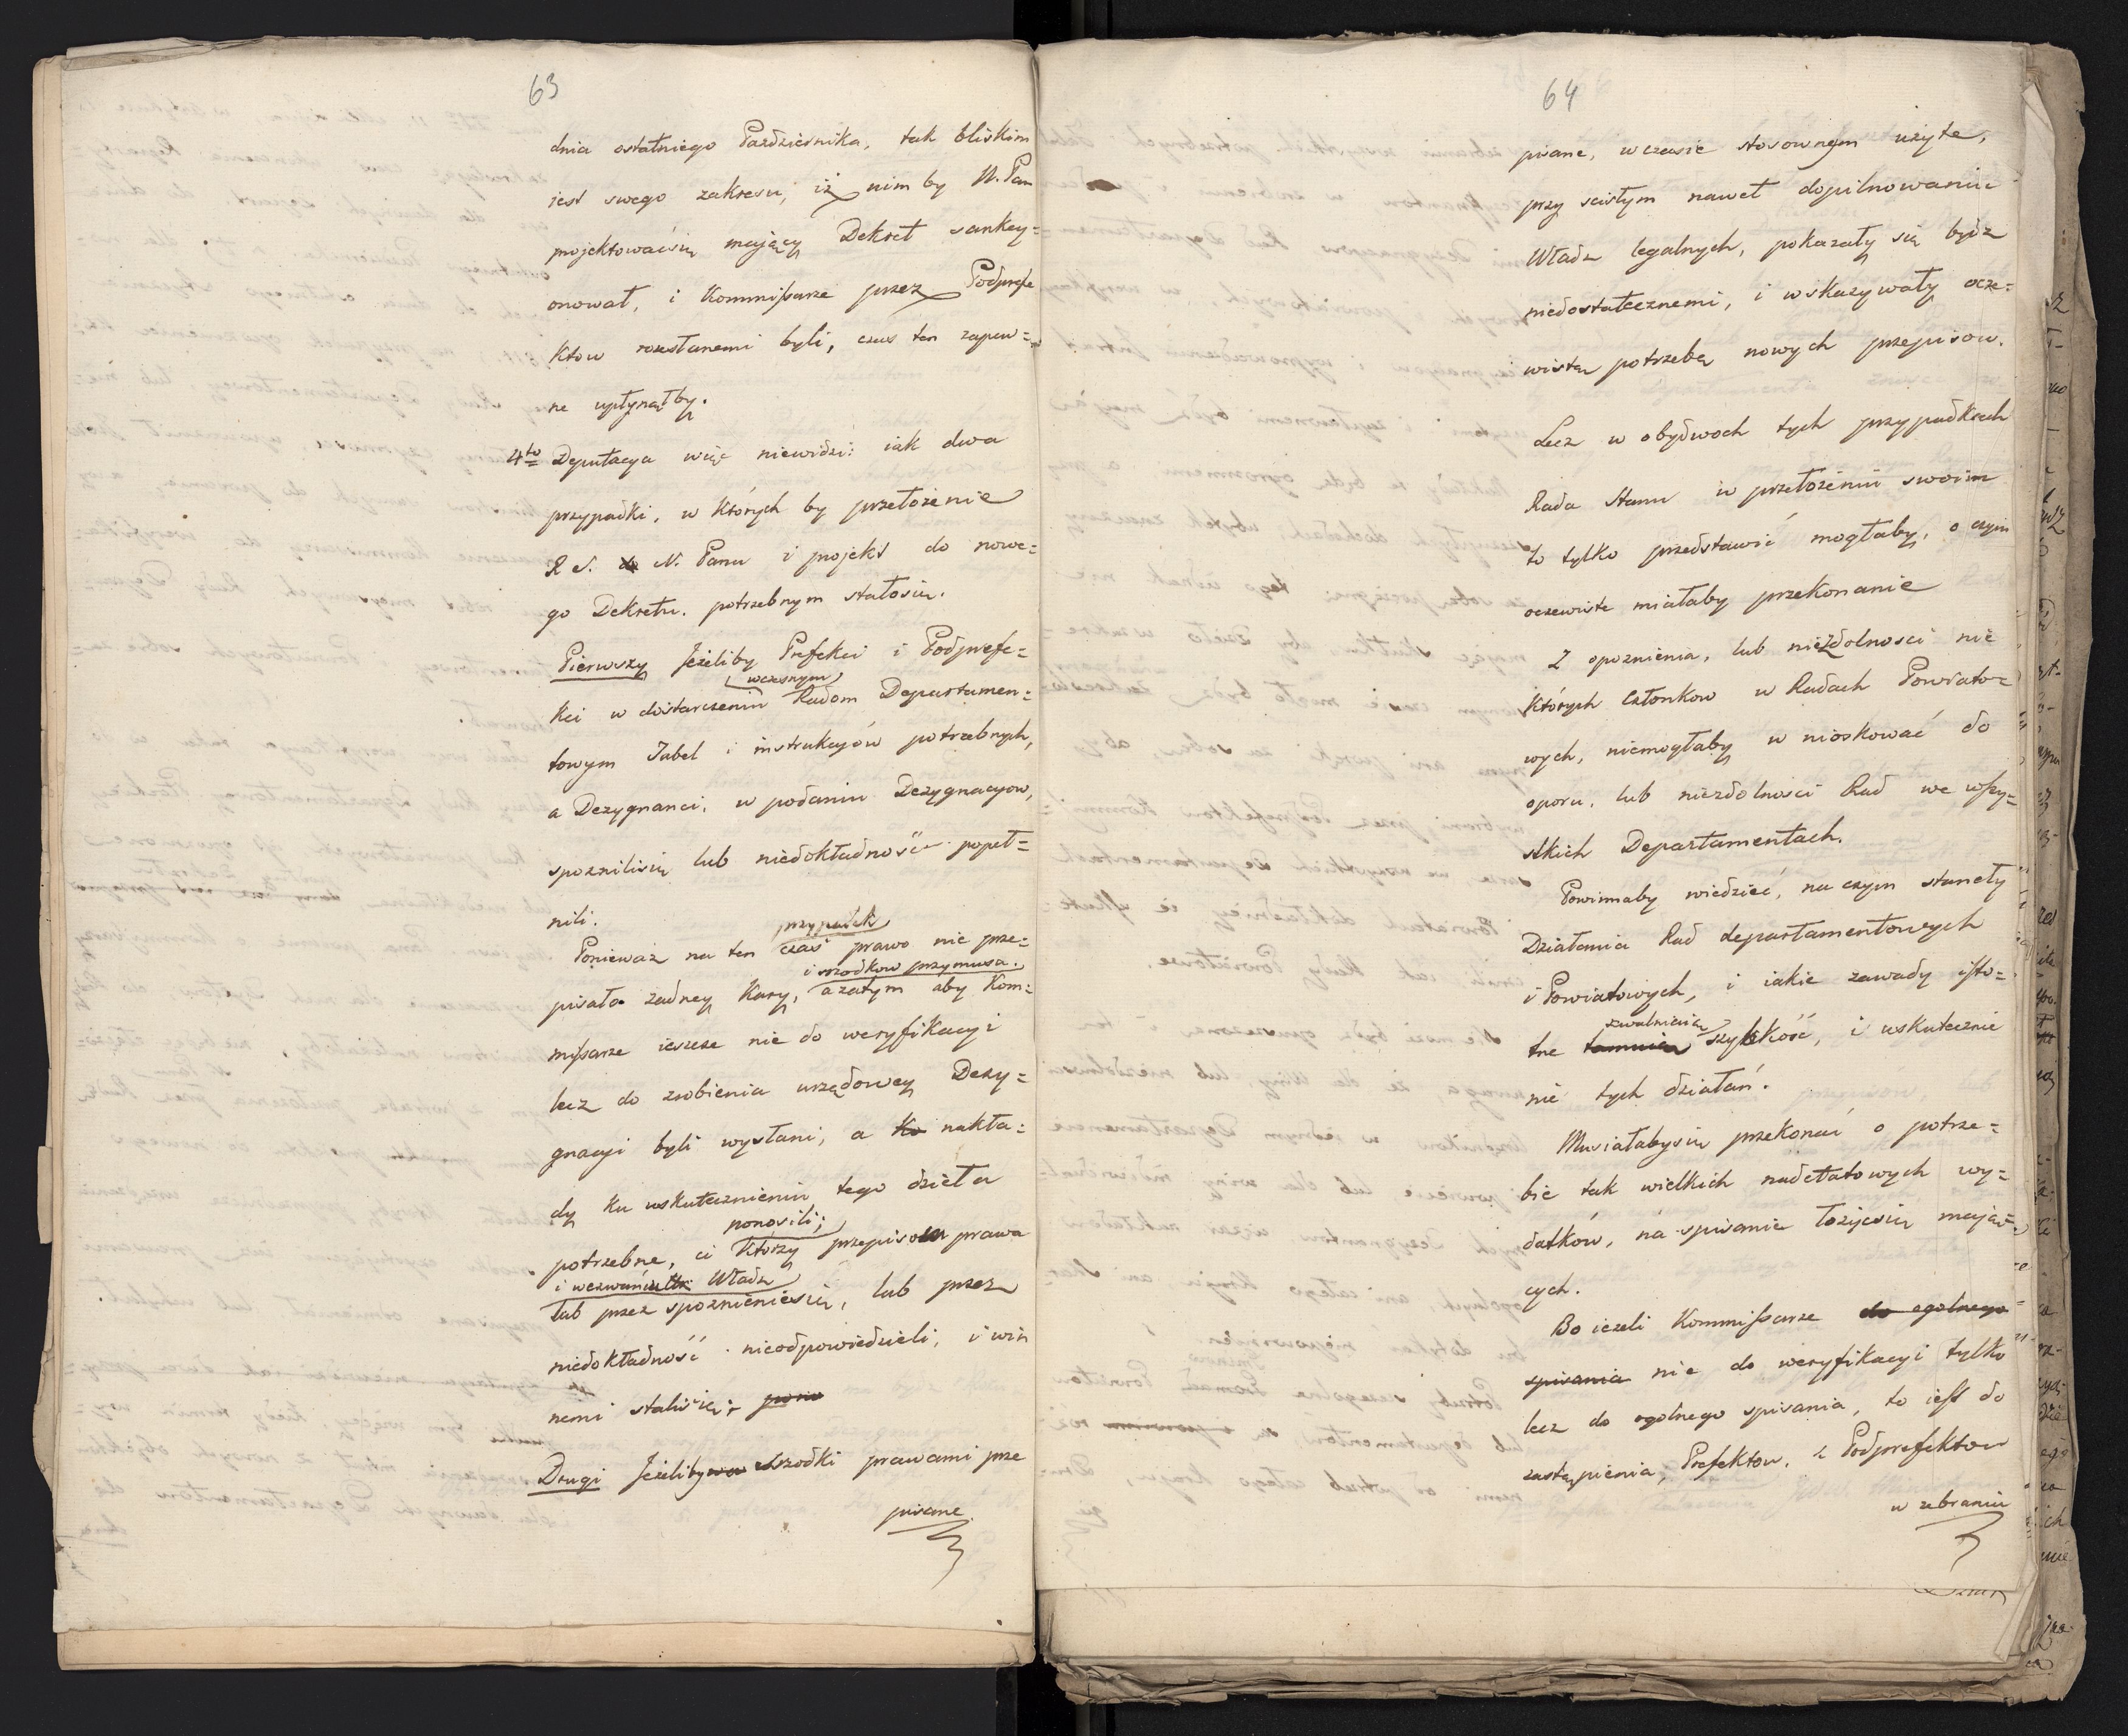 63
dnia ostatniego Pazdziernika, tak bliskim
iest swego zakresu, iż nim by N. Pan
projektowaćsię mający Dekret sankcy=
onował, i Kommissarze przez Podprefe
któw rozesłanemi byli, czas ten zapew=
ne upłynąłby.
4to Deputacya więc niewidzi: iak dwa
przypadki, w których by przełożenie
R S. N. Panu i projekt do nowe=
go Dekretu. potrzebnym stałosię.
Pierwszy Jeżeliby Prefekci i Podprefe=
wczesnym
kci w dostarczeniu Radom Departamen=
towym Tabel i instrukcyów potrzebnych,
a Dezygnanci, w podaniu Dezygnacyow,
spoznilisię lub niedokładność popeł=
nili.
przypadek
Ponieważ na ten czas prawo nie prze=
i srzodkow przymusa.
pisało żadney kary, azatym aby Kom=
missarze ieszcze nie do weryfikacyi
lecz do zrobienia urzędowey Dezy=
gnacyi byli wysłani, a ko nakła=
dy ku uskutecznieniu tego dzieła
ponosili;
potrzebne, ci którzy przepisom prawa
i wezwaniu Władz
lub przez spoznieniesię, lub przez
niedokładność nieodpowiedzieli, i win
nemi stalisię;
Drugi Jeżeliby srzodki prawami prze
pisane
64
pisane, wczasie stosownym użyte,
przy scisłym nawet dopilnowaniu
Władz legalnych, pokazały się bydz
niedostatecznemi, i wskazywały ocze=
wistą potrzebę nowych przepisow.
Lecz w obydwoch tych przypadkach
Rada Stanu w przełożeniu swoim
to tylko przedstawić mogłaby, o czym
oczewiste miałaby przekonanie
Z opoznienia, lub niezdolnosci nie
których Członkow w Radach Powiato=
wych, niemogłaby wnioskować do
oporu, lub niezdolnosci Rad we wszy=
stkich Departamentach.
Powinnaby wiedzieć, na czym stanęły
Działania Rad departamentowych
i Powiatowych, i iakie zawady isto=
zwalniaią
tne tamuią szybkość, i uskutecznie
nie tych działań.
Musiałabysię przekonać o potrze=
bie tak wielkich nadetatowych wy=
datków, na spisanie łożycsię mają=
cych.
Bo ieżeli Kommissarze do ogolnego
spisania nie do weryfikacyi tylko
lecz do ogolnego spisania, to iest do
zastąpienia, Prefektow, i Podprefektow
w zebraniu